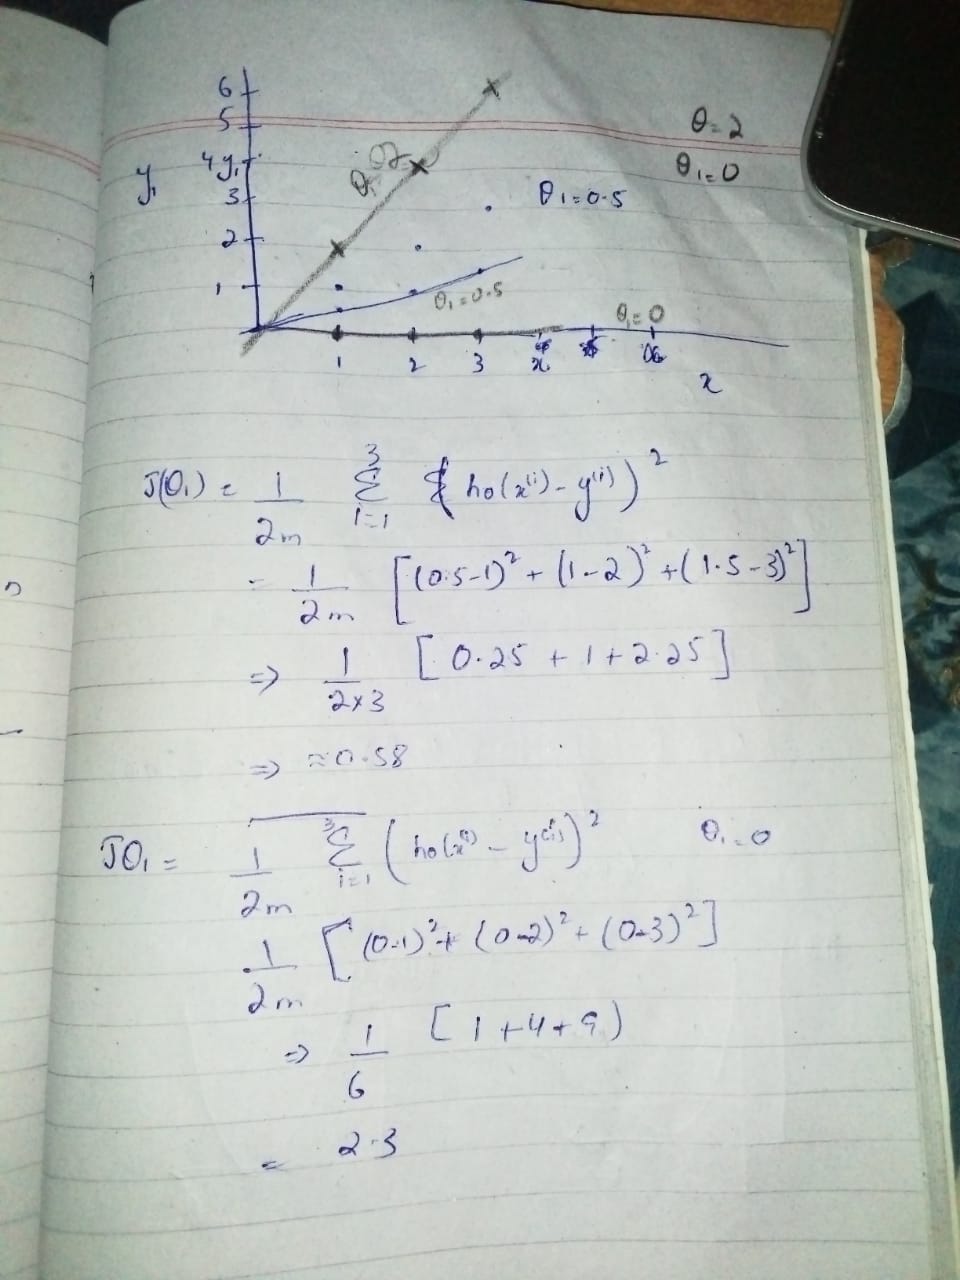 6
5
4 y₁
3
2
1
y₁
θ = 2
θ₁ = 0
θ₁ = 0.5
θ₁ = 0.5
θ₁ = 0
1 2 3
x
J(θ₁) = 1/2m 3 Σ i=1 ( hθ(x⁽ⁱ⁾ - y⁽ⁱ⁾)²
= 1/2m [(0.5-1)² + (1-2)² + (1.5-3)²]
⇒ 1/2×3 [0.25 + 1 + 2.25]
⇒ ≈ 0.58
Jθ₁ = 1/2m 3 Σ i=1 (hθ(x⁽ⁱ⁾ - y⁽ⁱ⁾)² θ₁ = 0
1/2m [(0-1)² + (0-2)² + (0-3)²]
⇒ 1/6 [1+4+9)
= 2.3